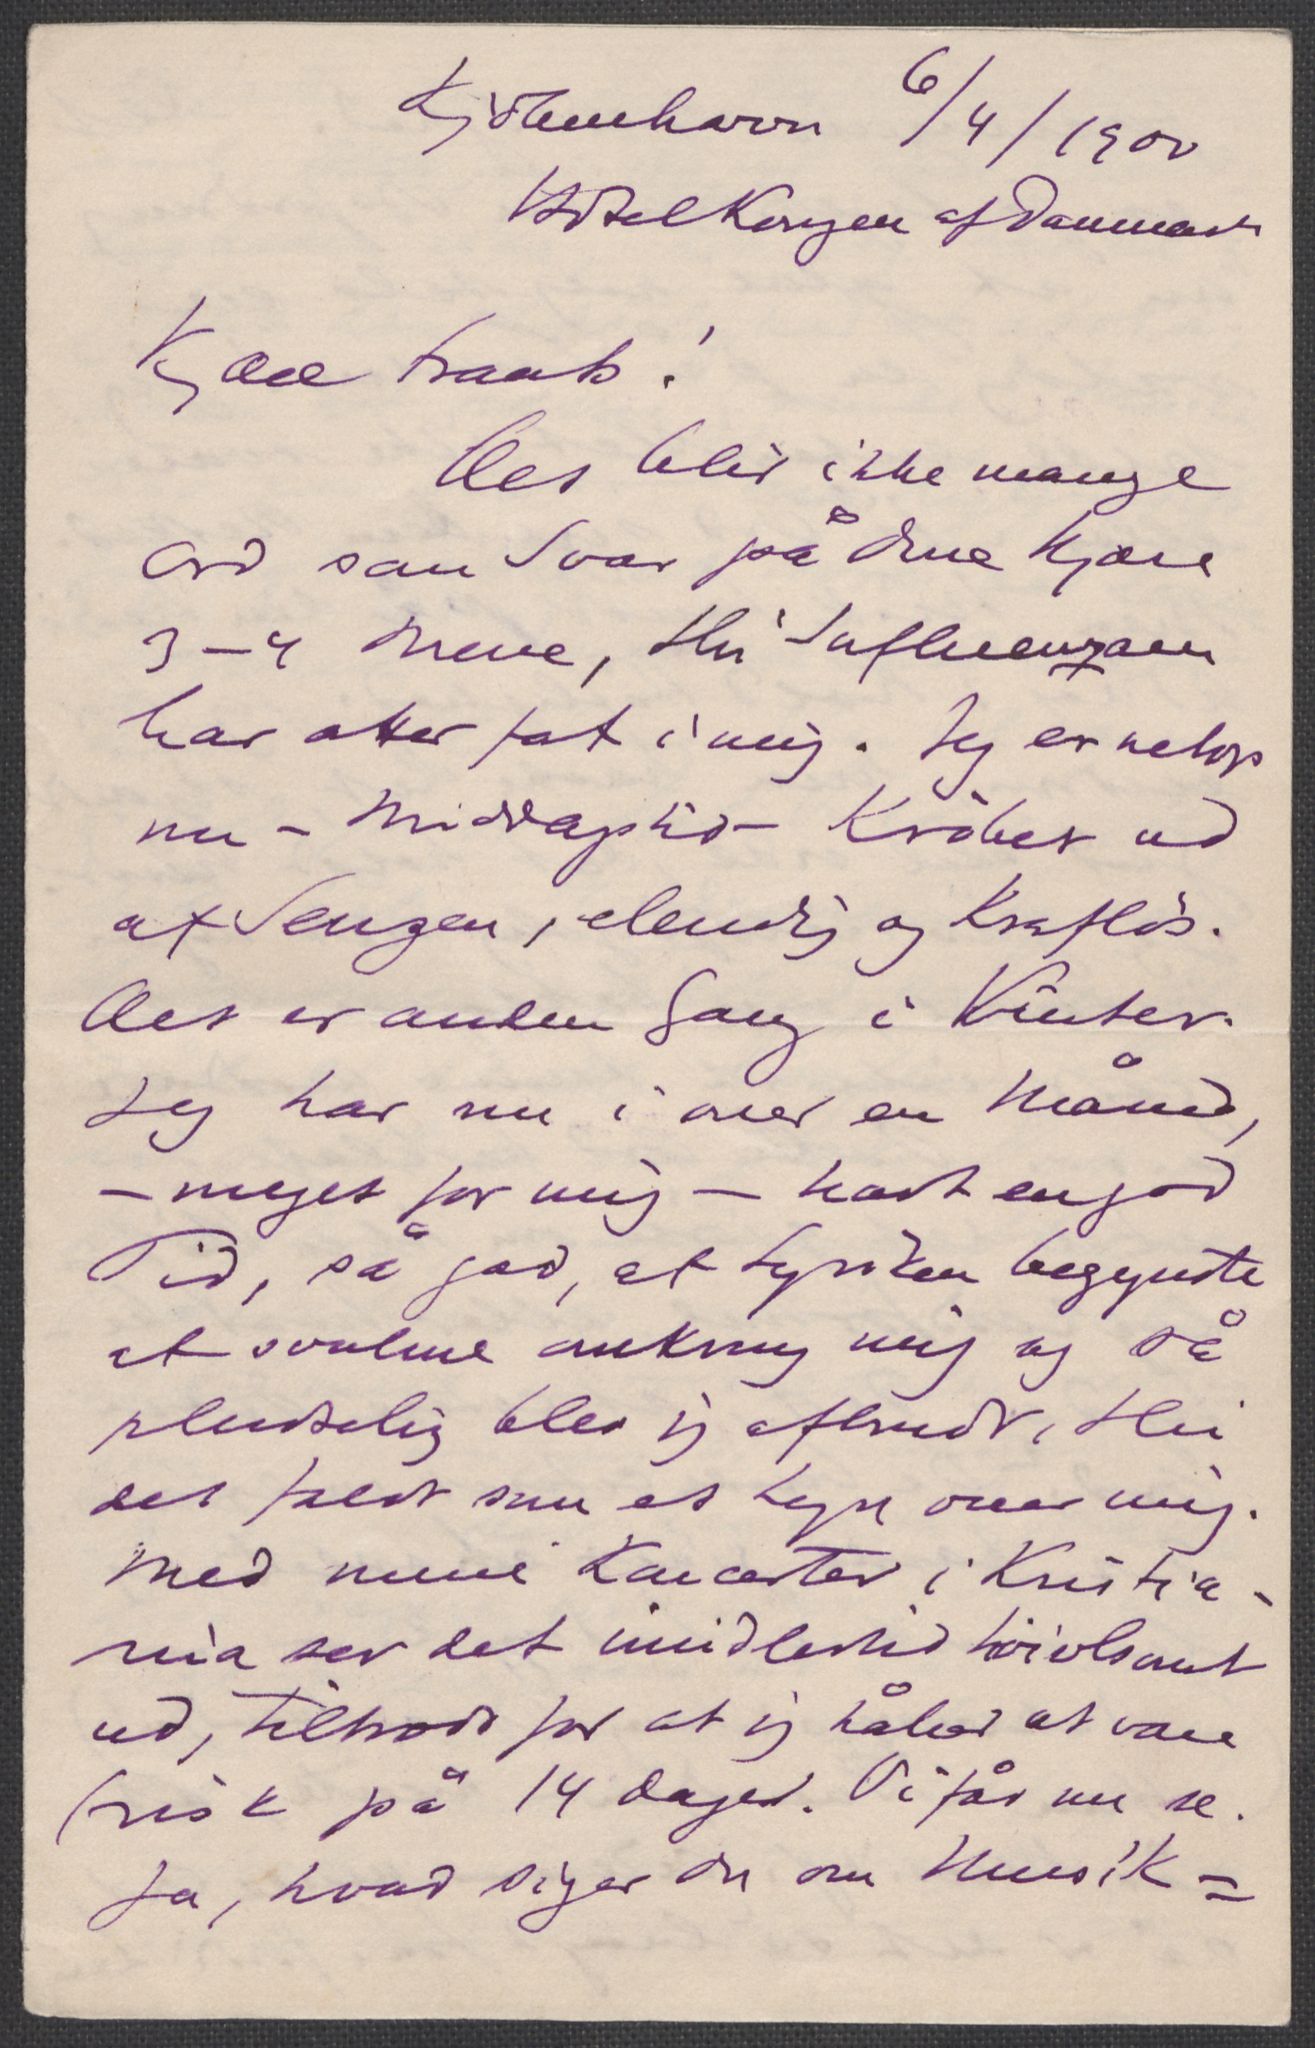 Kjöbenhavn 6/4/1900
Hôtel Kongen af Danmark
Kjære Frants!
Det blir ikke mange
Ord som Svar på dine kjære
3–4 Breve, thi Influenzaen
har atter fat i mig. Jeg er netop
nu – Middagstid – kröbet ud
af Sengen, elendig og kraftlös.
Det er anden Gang i Vinter.
Jeg har nu i over en Måned,
– meget for mig – havt en god
Tid, så god, at Lyriken begyndte
at svulme omkring mig og så
pludselig blev jeg afbrudt, thi
det faldt som et Lyn over mig.
Med mine Koncerter i Kristia-
nia ser det imidlertid tvivlsomt
ud, tiltrods for at jeg håber at være
frisk på 14 Dager. Vi får nu se.
Ja, hvad siger du om Musik=